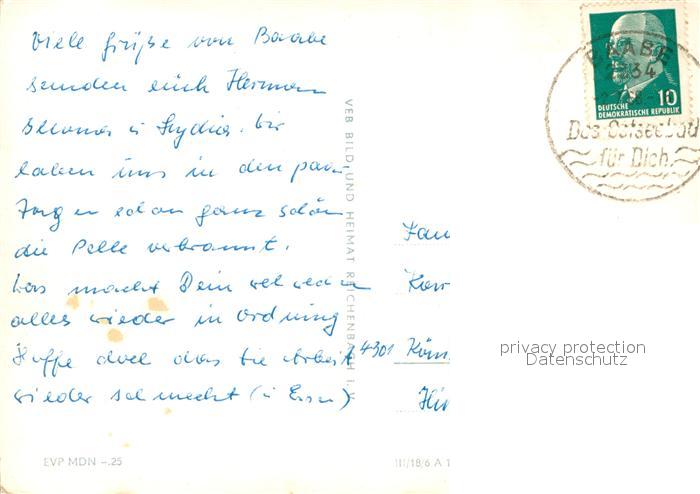 Viele Grüße von Baabe
senden euch Herman
u Lydia. Wir
haben uns in den paar
Tagen schon ganz schön
die Pelle verbrannt.
Was macht Dein
alles wieder in Ordnung
Hoffe doch das die Arbeit
wieder schmeckt (in Eisen)
VEB BILD UND HEIMAT REICHENBACH I. V.
BAABE
2334
Das Ostseebad
für Dich.
10
DEUTSCHE
DEMOKRATISCHE REPUBLIK
Fam
4301
privacy protection
Datenschutz
EVP MDN -.25
III/18/6 A 1